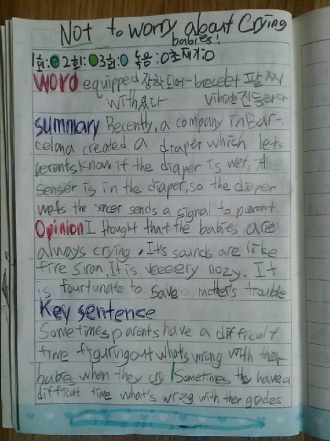 Not to worry about Crying
babies!
1회:O 2회:O 3회:O 녹음:O 초재기:O
word equipped 장착 되어 bracelet 팔찌
with 있다 vibrate 진동하다
summary Recently, a company in Bar-
celona created a draper which lets
perents know if the diaper is wet, the
senser is in the diaper, so the diaper
wets the sencer sends a signal to parent.
Opinion I thought that the babies are
always crying, It's sounds are like
fire siron, It is veeeery nozy. It
is fourtunate to save mother's trouble
Key sentence
Sometimes parents have a difficult
time figuring out what's wrong with ther
babies when they cry / Sometimes the have a
difficult time what's wrong with ther grades